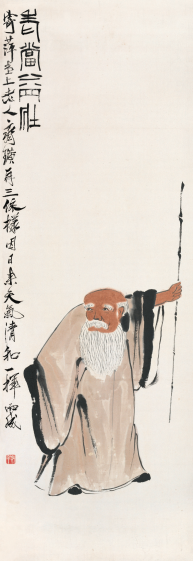 老當益壯
寄萍堂上老人齊璜第三依樣因日來天氣清和一揮而成